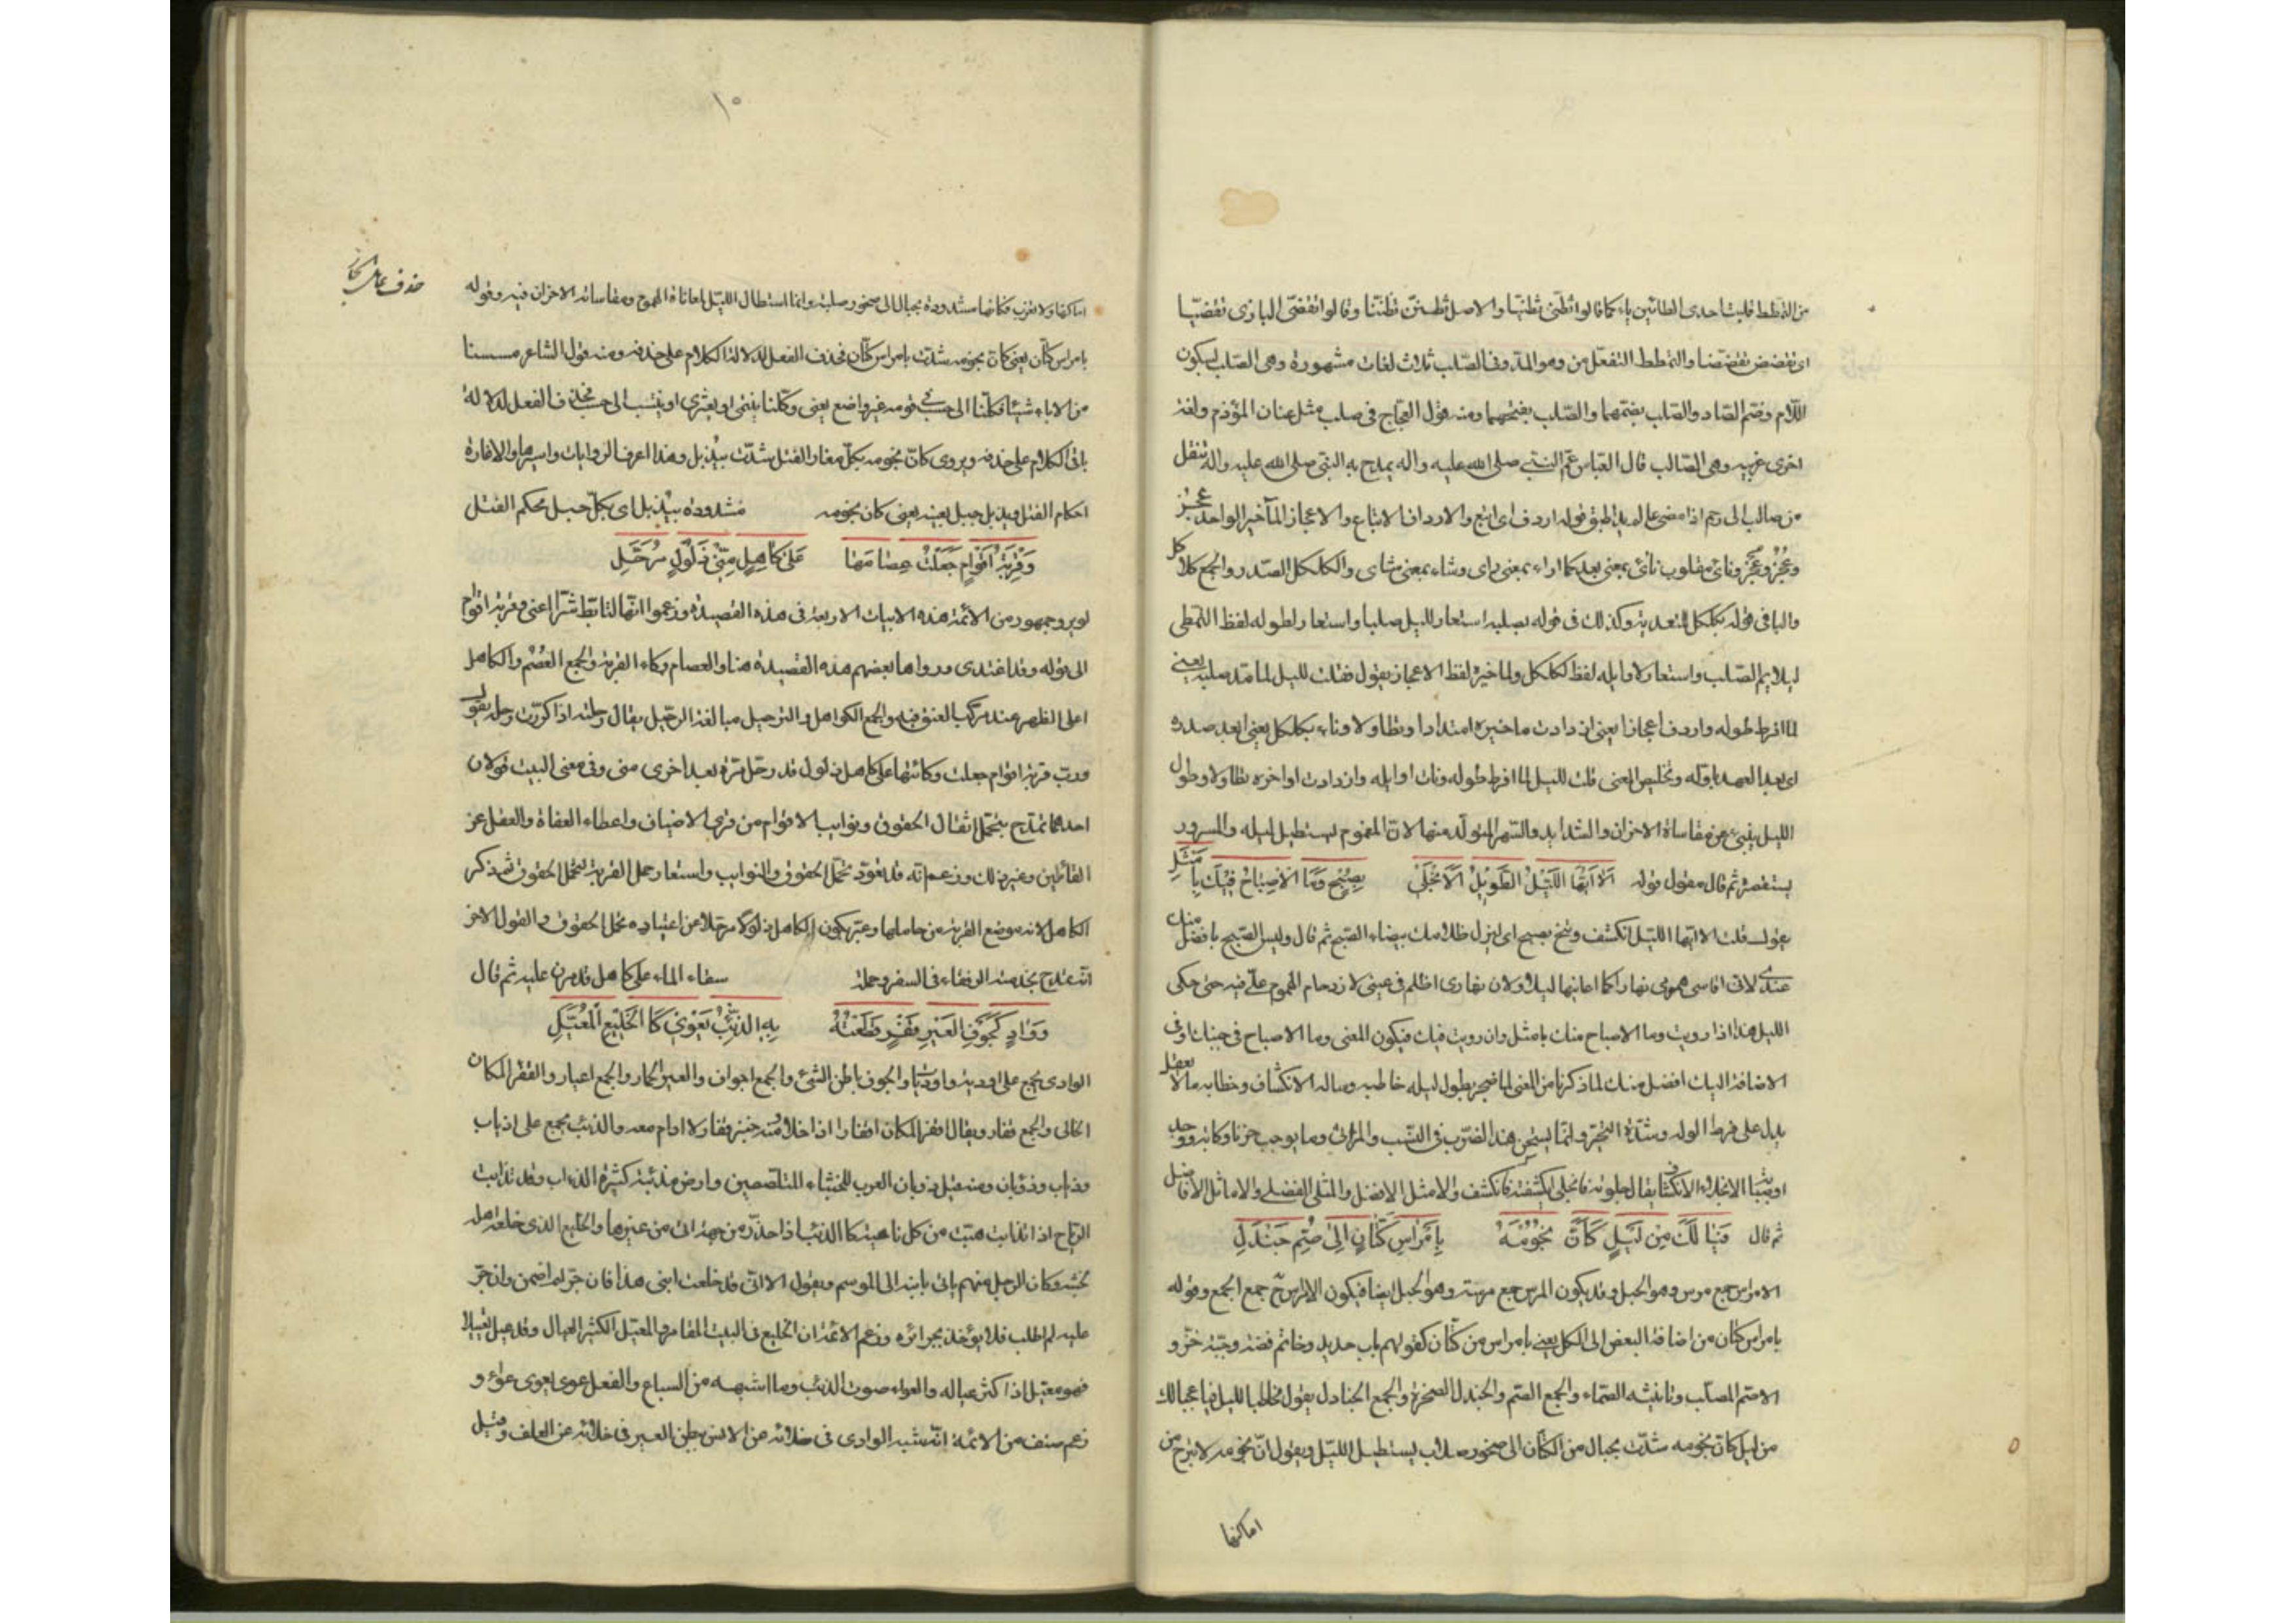 من التمطط فقلبت احدى الطائين ياء كما قالوا تظنى تظنيا والاصل تظنن تظننا وقالوا تقضى البازى تقضيا
اى تقضض تقضضا والتمطط التفعل من وهو المد وفى الصلب ثلاث لغات مشهورة وهى الصلب بسكون
اللام وضم الصاد والصلب بضمهما والصلب بفتحهما ومنه قول العجاج فى صلب مثل عنان المؤدم ولغة
اخرى غريبه وهى الصالب قال العباس عم النبى صلى الله عليه واله يمدح به النبى صلى الله عليه واله تنقل
من صالب الى رحم اذا مضى عالم بدا طبق قوله اردف اى اتبع والارداف الاتباع والاعجاز المآخير الواحد عجز
وعجز وعجز وناى مقلوب نأى بمعنى بعد كما راء بمعنى راى وشاء بمعنى شاى والكلكل الصدر والجمع كلاكل
والبا فى قوله بكلكل للتعدية وكذلك فى قوله بصلبه استعار لليل صلبا واستعار لطوله لفظ التمطى
ليلايم الصلب واستعار لاوايله لفظ الكلكل ولماخيره لفظ الاعجاز يقول فقلت لليل لما مد صلبه يعنى
لما افرط طوله واردف اعجازا يعنى ازدادت ماخيره امتدادا وتطاولا وناء بكلكل يعنى ابعد صدره
اى بعد العهد باوله وتلخيص المعنى قلت لليل لما افرط طوله ونات اوايله وازدادت اواخره تطاولا وطول
الليل ينبئ عن مقاساة الاحزان والشدايد والسهر المتولد منها لان المغموم يستطيل ليله والمسرور
يستقصره ثم قال مقول قوله الا ايها الليل الطويل الا انجلى بصبح وما الاصباح فيك بامثل
يقول قلت الا ايها الليل انكشف وتنح بصبح اى ليزل ظلامك بضياء الصبح ثم قال وليس الصبح بافضل منك
عندى لانى اقاسى همومى نهارا كما اعانيها ليلا ولان نهارى اظلم فى عينى لازدحام الهموم على فيه حتى حكى
الليل هذا اذا رويت وما الاصباح منك بامثل وان رويت فيك فيكون المعنى وما الاصباح فى جنبك او فى
الاضافة اليك افضل منك لما ذكرنا من المعنى لما ضجر بطول ليله خاطبه وساله الانكشاف وخطابه ما لا يعقل
يدل على فرط الوله وشدة التحير وانما يستحسن هذا الضرب فى النسيب والمراثى وما يوجب حزنا وكابة ووجدا
وصبابة الانجلاء الانكشاف يقال جلوته فانجلى اى كشفته فانكشف والامثل الافضل والمثلى الفضلى والاماثل الافاضل
ثم قال فيا لك من ليل كان نجومه بامراس كتان الى صم جندل
الامراس جمع مرس وهو الحبل وقد يكون المرس جمع مرسة وهو الحبل ايضا فيكون الامراس ح جمع الجمع وقوله
بامراس كتان من اضافة البعض الى الكل يعنى بامراس من كتان كقولهم باب حديد وخاتم فضة وجبة خز و
الاصم الصلب وتانيثه الصماء والجمع الصم والجندل الصخرة والجمع الجنادل يقول مخاطبا لليل فيا عجبا لك
من ليل كان نجومه شدت بحبال من الكتان الى صخور صلاب يستطيل الليل ويقول ان نجومه لا تبرح من
اماكنها
١٠
اماكنها ولا تغرب فكانها مشدودة بحبال الى صخور صلبة وانما استطال الليل لمعاناة الهموم ومقاساته الاحزان فيه وقوله
بامراس كتان يعنى كان نجومه شدت بامراس كتان فحذف الفعل لدلالة الكلام على حذفه ومنه قول الشاعر مسسنا
من الاباء شيئا فكلنا الى حسب فى قومه غير واضع يعنى وكلنا ينتمى او يعتزى او ينتسب الى حسب فحذف الفعل لدلالة
باقى الكلام على حذفه ويروى كان نجومه بكل مغار الفتل شدت بيذبل وهذا اعرف الروايات واسيرها والاغارة
احكام الفتل ويذبل جبل بعينه يعنى كان نجومه مشدودة بيذبل اى بكل حبل محكم الفتل
وقربة اقوام جعلت عصامها على كاهل منى ذلول مرحل
لم يرو جمهور من الائمة هذه الابيات الاربعة فى هذه القصيدة وزعموا انها لتابط شرا اعنى وقربة اقوام
الى قوله وقد اغتدى ورواها بعضهم هذه القصيدة هنا والعصام وكاء القربة والجمع العصم والكاهل
اعلى الظهر عند مركب العنق فيه والجمع الكواهل والترحيل مبالغة الرحيل يقال رحلته اذا كررت رحله يقول
ورب قربة اقوام جعلت وكائها على كاهل ذلول قد رحل مرة بعد اخرى منى وفى معنى البيت قولان
احدهما تمدح بتحمل اثقال الحقوق ونوايب الاقوام من قرى الاضياف واعطاء العفاة والعقل عن
القاتلين وغير ذلك وزعم انه قد تعود تحمل الحقوق والنوايب واستعار حمل القربة لتحمل الحقوق ثم ذكر
الكاهل لانه موضع القربة من حاملها وعبر بكون الكاهل ذلولا مرحلا عن اعتياده تحمل الحقوق والقول الاخر
انه تمدح بخدمته الرفقاء فى السفر وحمله سقاء الماء على كاهل قد مرن عليه ثم قال
وواد كجوف العير قفر قطعته به الذئب يعوى كالخليع المعيل
الوادى يجمع على اودية واوديا والجوف باطن الشئ والجمع اجواف والعير الحمار والجمع اعيار والقفر المكان
الخالى والجمع قفار ويقال اقفر المكان اقفارا اذا خلا ومنه خبز قفار لا ادام معه والذئب يجمع على اذياب
وذياب وذؤبان ومنه قيل ذؤبان العرب للخبثاء المتلصصين وارض مذئبة كثيرة الذئاب وقد تذابت
الرياح اذ تذابت هبت من كل ناحية كالذئب اذا حذر من جهة اتى من غيرها والخليع الذى خلعه اهله
لخبثه وكان الرجل منهم ياتى بابنه الى الموسم ويقول الا انى قد خلعت ابنى هذا فان جر لم اضمن وان جر
عليه لم اطلب فلا يؤخذ بجرائره وزعم الائمة ان الخليع فى البيت المقامر والمعيل الكثير العيال وقد عيل تعييلا
فهو معيل اذا كثر عياله والعواء صوت الذئب وما اشبهه من السباع والفعل عوى يعوى عواء و
زعم صنف من الائمة انه شبه الوادى فى خلائه عن الانس ببطن العير فى خلائه عن العلف وقيل